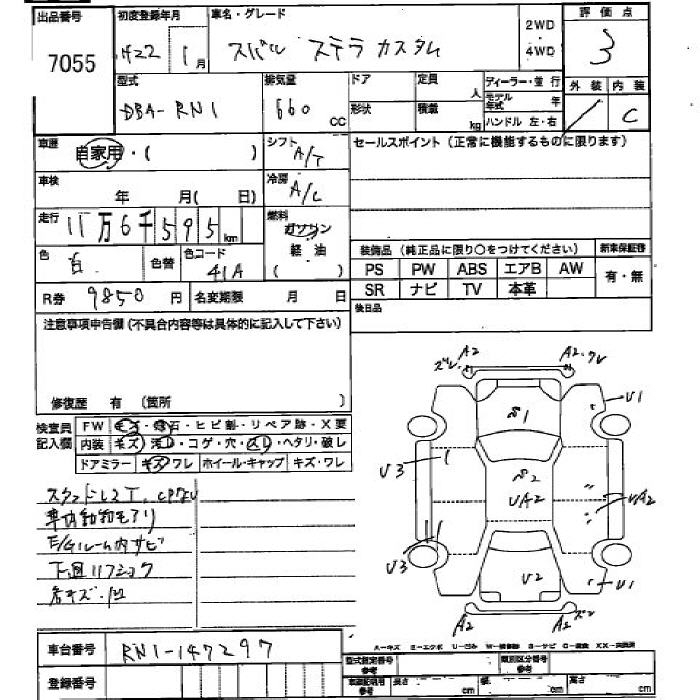 出品番号 初度登録年月 車名・グレード 2WD 評価点
7055 H22 1月 スバル ステラカスタム 4WD 3
型式 排気量 ドア 定員 人 ディーラー・並行 外装 内装
DBA-RN1 660 CC 形状 積載 kg モデル年式 年 C
ハンドル 左・右
車歴 自家用・( ) シフト A/T セールスポイント(正常に機能するものに限ります)
車検 年 月( 日) 冷房 A/C
走行 11万6千595km 燃料 ガソリン
軽油
( )
色 白 色替 色コード 41A 装備品(純正品に限り○をつけてください) 新車保証書
PS PW ABS エアB AW 有・無
SR ナビ TV 本革
R券 9850円 名変期限 月 日 後日品
注意事項申告欄(不具合内容等は具体的に記入して下さい)
修復歴 有 (箇所 )
検査員記入欄 FW キズ・飛石・ヒビ割・リペア跡・X要
内装 キズ・汚れ・コゲ・穴・スレ・ヘタリ・破し
ドアミラー キズ・ワレ ホイール・キャップ キズ・ワレ
車内動物モアリ
E/Gルーム内サビ
下廻リフショク
若キズ・凹
A2 A2・ワレ
ズレ
U1
S1
U3
S2
UA2
UA2
U3
U2
U1
A2 A2 ズレ
A-キズ E-エクボ U-凹み W-補修跡 S-サビ C-腐食 XX-交換済
車台番号 RN1-147297
型式指定番号 参考 類別区分番号 参考
登録番号 車検証明用 参考 長さ cm 幅 cm 高さ cm